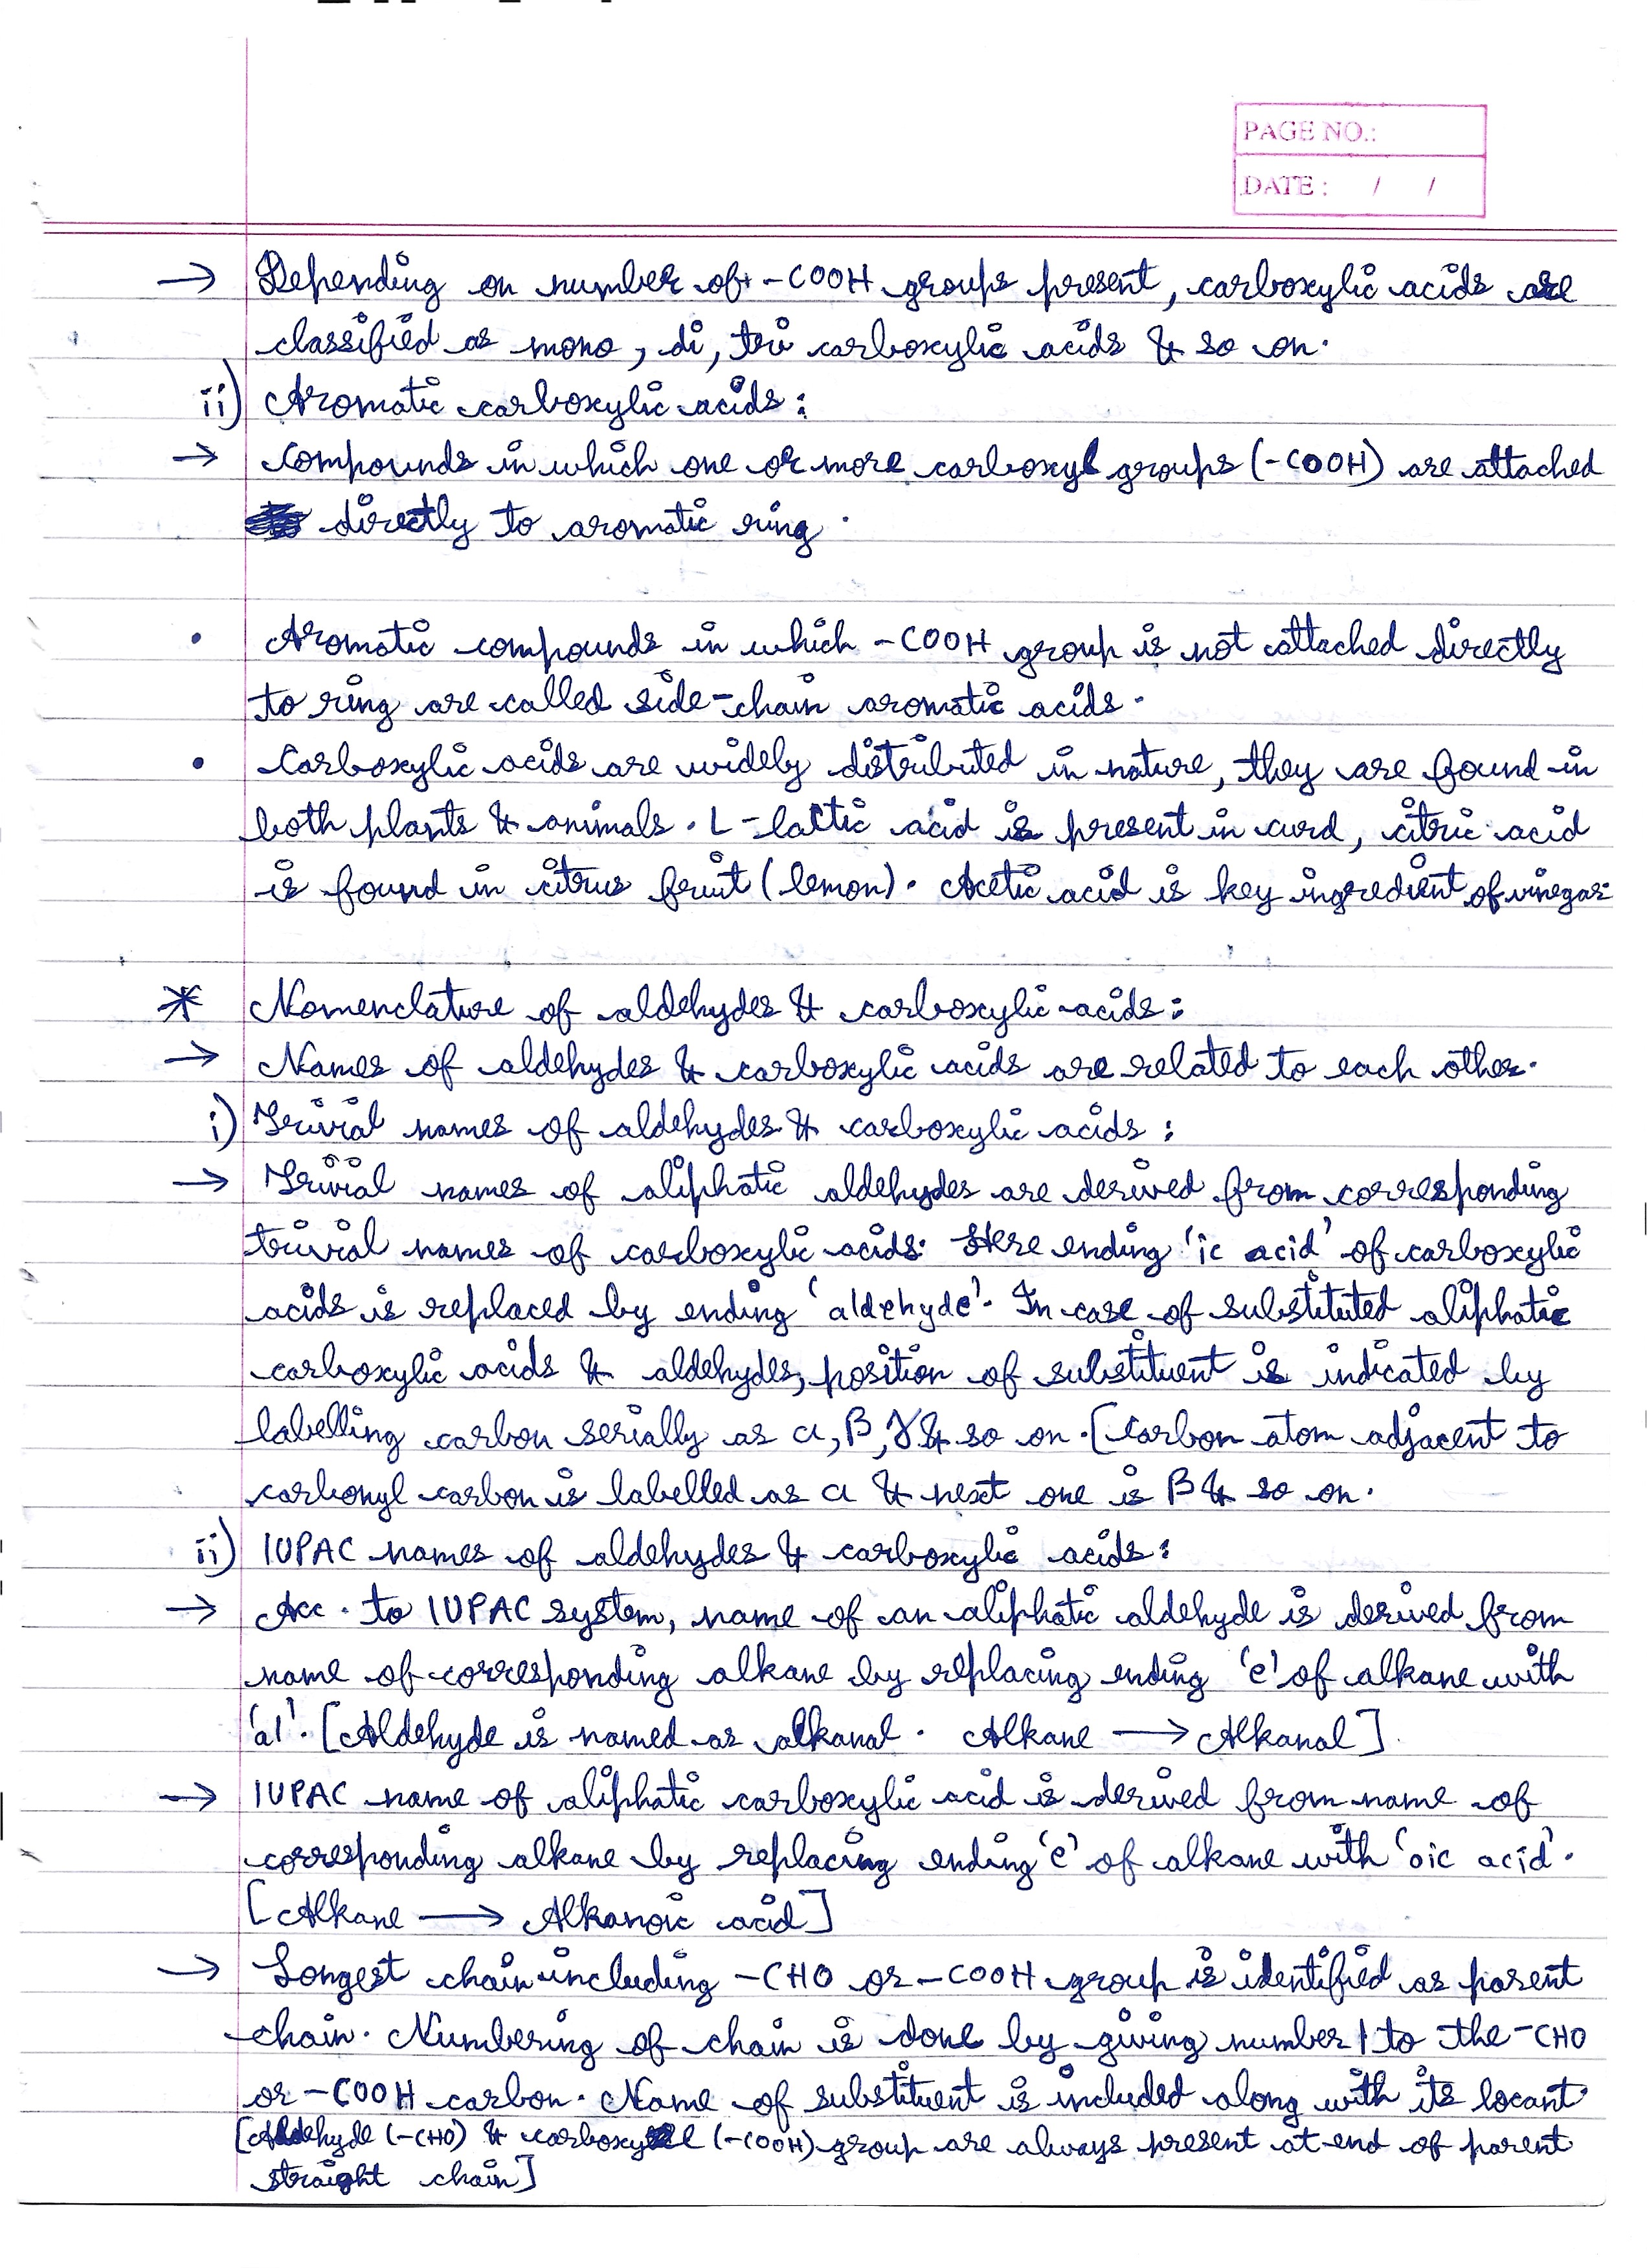 PAGE NO.:
DATE : / /
→ Depending on number of -COOH groups present, carboxylic acids are
classified as mono, di, tri carboxylic acids & so on.
ii) Aromatic carboxylic acids:
→ Compounds in which one or more carboxyl groups (-COOH) are attached
directly to aromatic ring.
• Aromatic compounds in which -COOH group is not attached directly
to ring are called side-chain aromatic acids.
• Carboxylic acids are widely distributed in nature, they are found in
both plants & animals. L-lactic acid is present in curd, citric acid
is found in citrus fruit (lemon). Acetic acid is key ingredient of vinegar.
* Nomenclature of aldehydes & carboxylic acids:
→ Names of aldehydes & carboxylic acids are related to each other.
i) Trivial names of aldehydes & carboxylic acids:
→ Trivial names of aliphatic aldehydes are derived from corresponding
trivial names of carboxylic acids. Here ending 'ic acid' of carboxylic
acids is replaced by ending 'aldehyde'. In case of substituted aliphatic
carboxylic acids & aldehydes, position of substituent is indicated by
labelling carbon serially as α, β, γ & so on. [Carbon atom adjacent to
carbonyl carbon is labelled as α & next one is β & so on.
ii) IUPAC names of aldehydes & carboxylic acids:
→ Acc. to IUPAC system, name of an aliphatic aldehyde is derived from
name of corresponding alkane by replacing ending 'e' of alkane with
'al'. [Aldehyde is named as alkanal. Alkane → Alkanal]
→ IUPAC name of aliphatic carboxylic acid is derived from name of
corresponding alkane by replacing ending 'e' of alkane with 'oic acid'.
[Alkane → Alkanoic acid]
→ Longest chain including -CHO or -COOH group is identified as parent
chain. Numbering of chain is done by giving number 1 to the -CHO
or -COOH carbon. Name of substituent is included along with its locant
[Aldehyde (-CHO) & carboxyl (-COOH) group are always present at end of parent
straight chain]